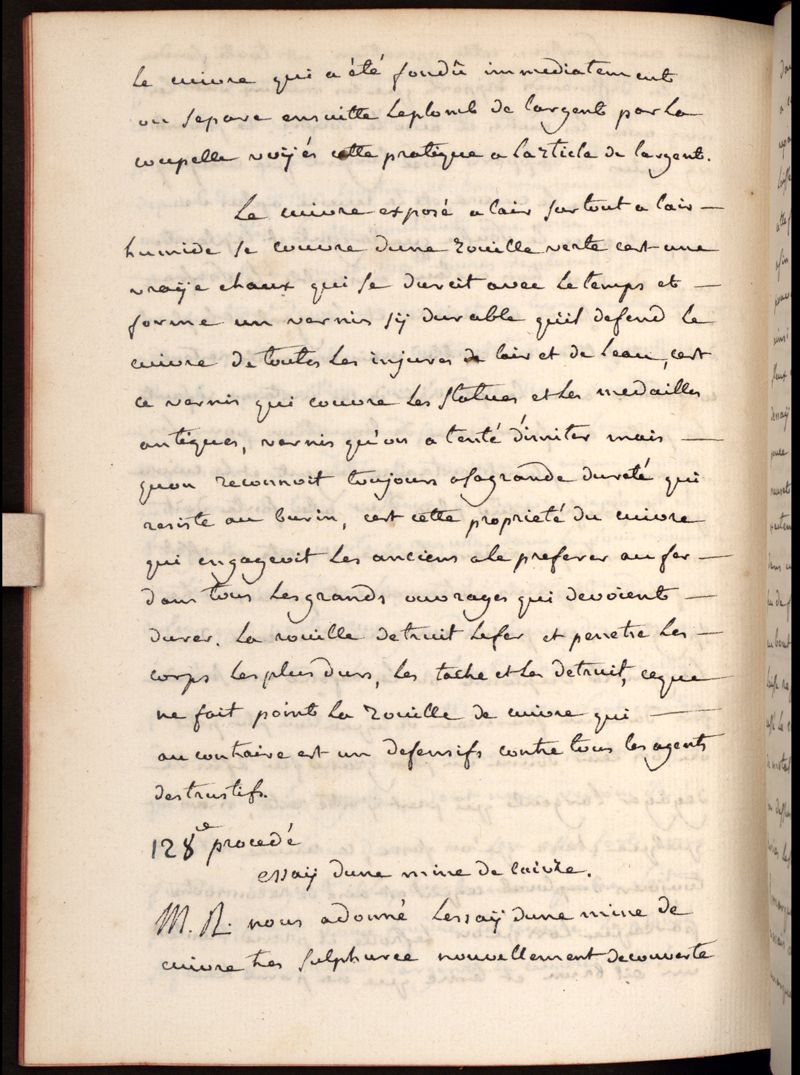 le cuivre qui a été fondû immediatement
on separe ensuitte leplomb de largent par la
coupelle voÿés cette pratique a larticle de largent.
Le cuivre exposé a lair surtout a lair —
humide se couvre dune rouille verte cest une
vraÿe chaux qui se durcit avec le temps et —
forme un vernis sÿ durable quil defend le
cuivre de toutes les injures de lair et de leau, cest
ce vernis qui couvre les statues et les medailles
antiques, vernis qu'on a tenté d'imiter mais —
quon reconnoit toujours asagrande dureté qui
resiste au burin, cest cette propriété du cuivre
qui engageoit les anciens ale preferer au fer —
dans tous les grands ouvrages qui devoient —
durer. La rouille detruit lefer et penetre les —
corps les plus durs, les tache et les detruit, ceque
ne fait point la rouille de cuivre qui —
au contraire est un defensifs contre tous les agents
destructifs.
128e procedé
essaÿ dune mine de cuivre.
M. R. nous adonné lessaÿ dune mine de
cuivre tres sulphuree nouvellement decouverte